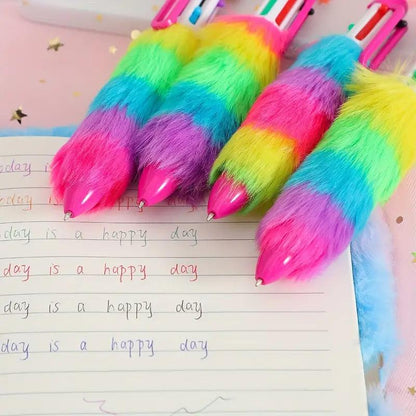 oday is a happy day
oday is a happy day
oday is a happy day
day is a happy day
day is a happy day
oday is a happy day